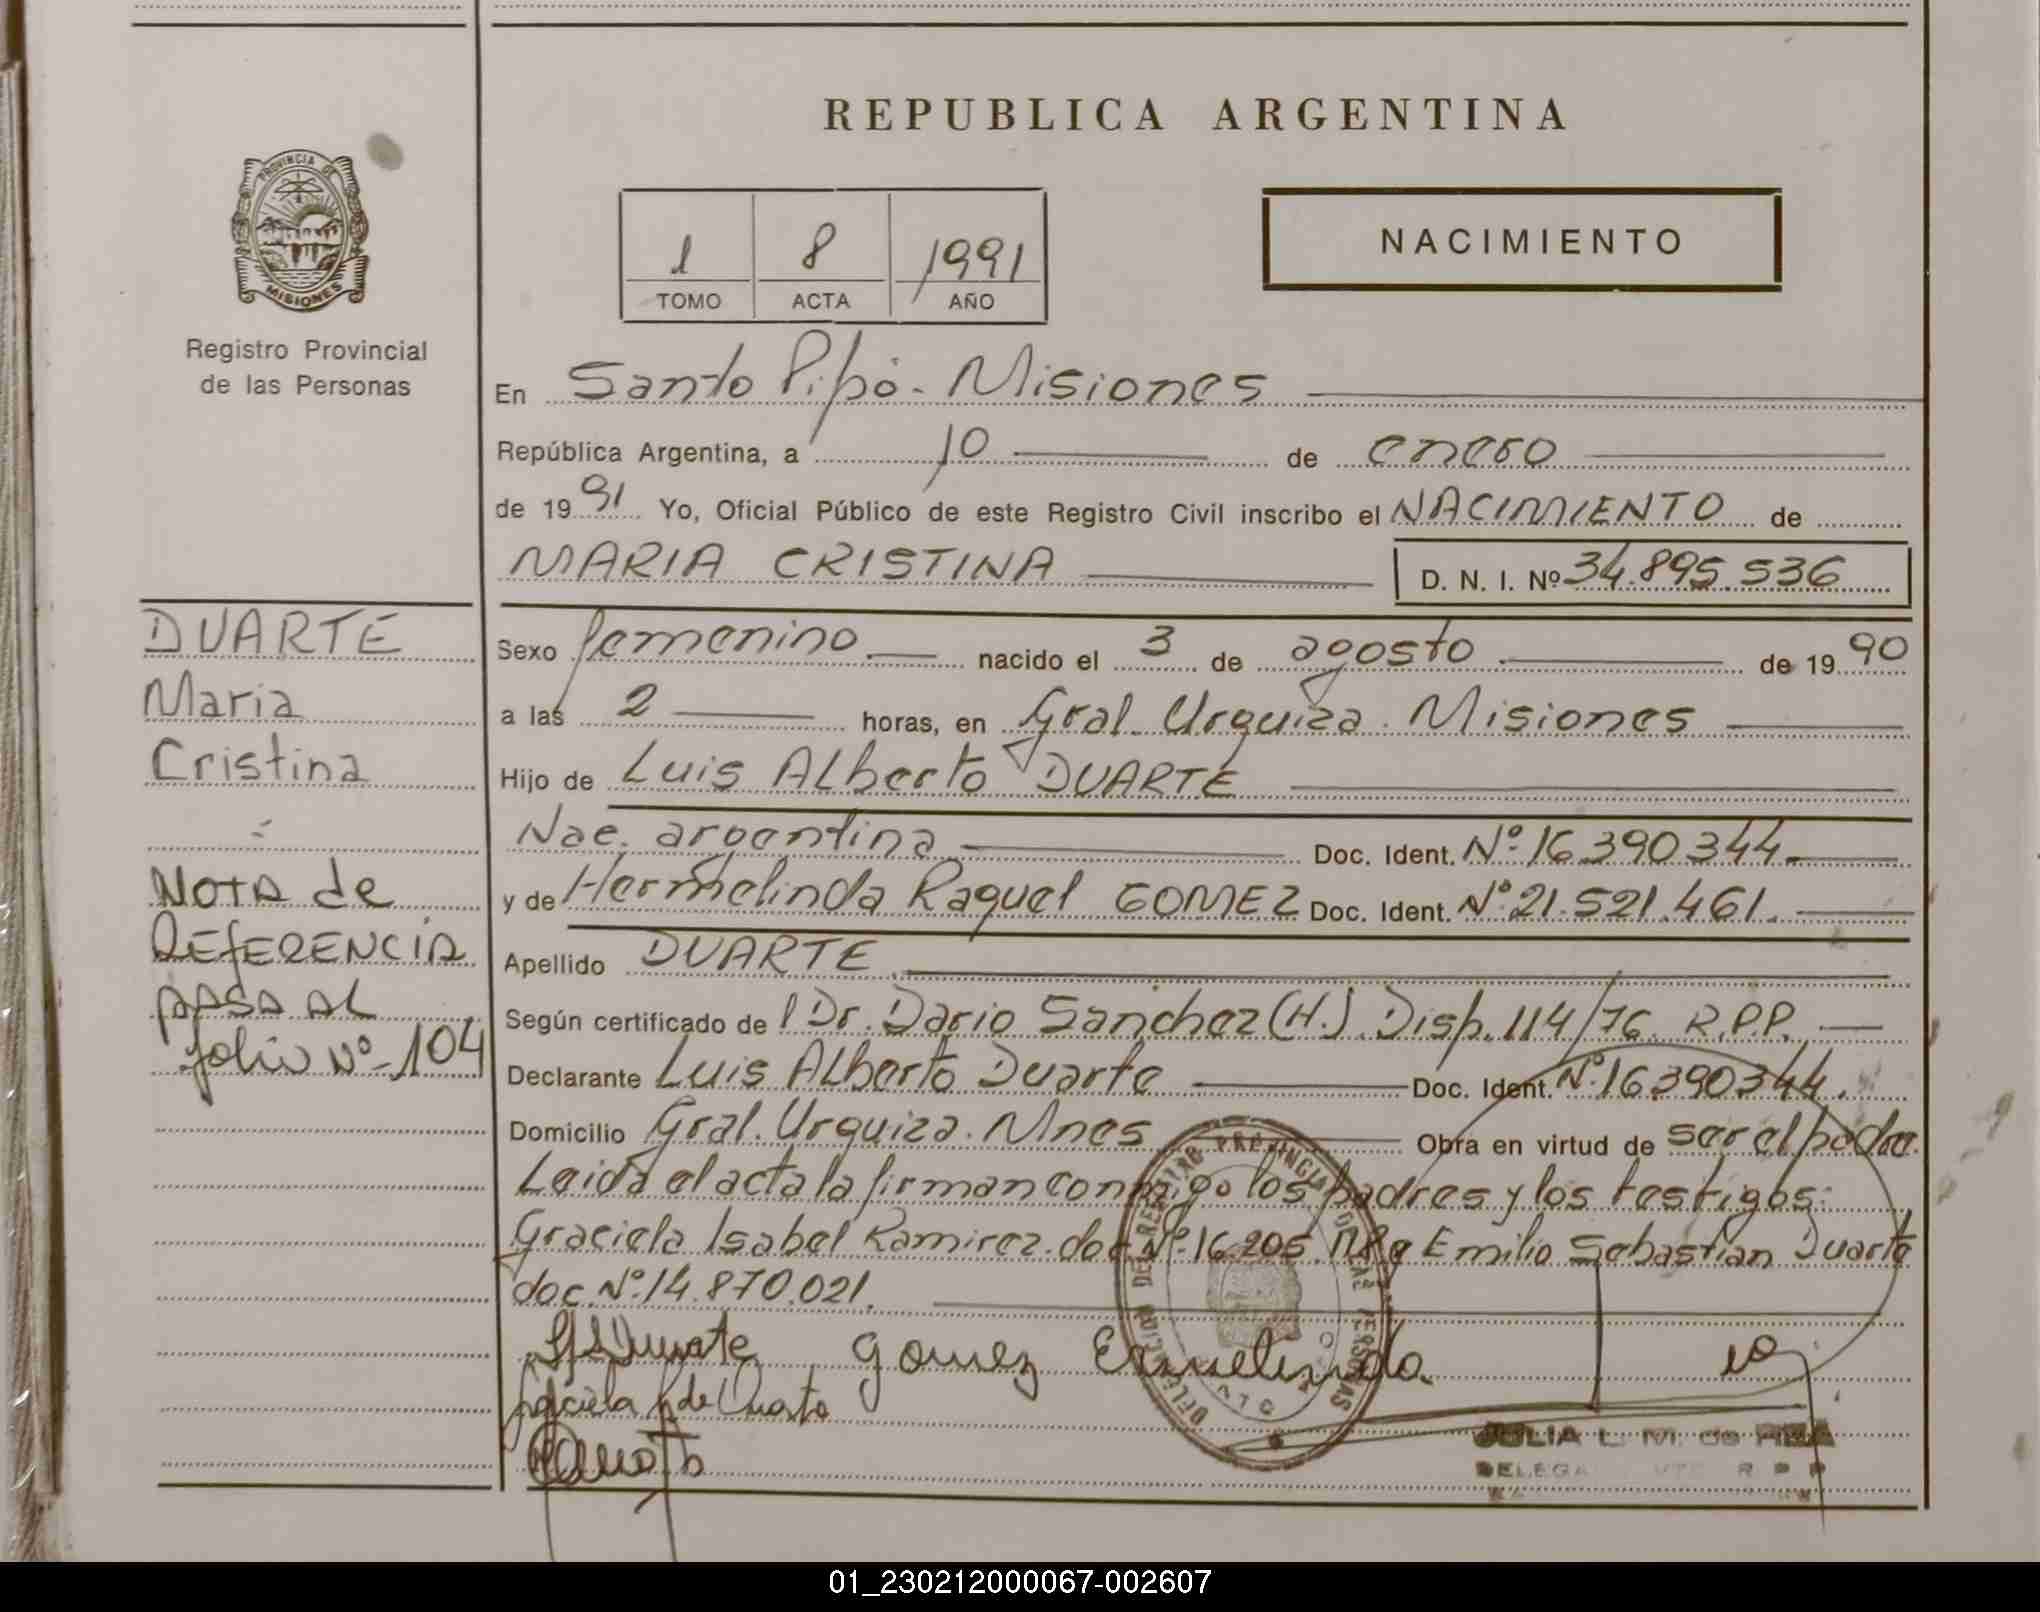 REPUBLICA ARGENTINA
PROVINCIA DE
MISIONES
Registro Provincial
de las Personas
1 8 1991
TOMO ACTA AÑO
NACIMIENTO
En Santo Pipó - Misiones
República Argentina, a 10 de enero
de 1991 Yo, Oficial Público de este Registro Civil inscribo el NACIMIENTO de
MARIA CRISTINA D. N. I. Nº 34.895.536
DUARTE
Maria
Cristina
NOTA de
REFERENCIA
PASA AL
folio Nº 104
Sexo femenino nacido el 3 de agosto de 1990
a las 2 horas, en Gral. Urquiza. Misiones
Hijo de Luis Alberto DUARTE
Nac. argentina Doc. Ident. Nº 16390344
y de Hermelinda Raquel GOMEZ Doc. Ident. Nº 21.521.461.
Apellido DUARTE
Según certificado de Dr. Dario Sanchez (H.) Disp. 114/76 R.P.P.
Declarante Luis Alberto Duarte Doc. Ident. Nº 16390344.
Domicilio Gral. Urquiza. Mnes Obra en virtud de ser el padre.
Leida el acta la firman conmigo los padres y los testigos:
Graciela Isabel Ramirez doc Nº 16.205. Emilio Sebastian Duarte
doc. Nº 14.870.021.
Gomez Ermelinda.
Graciela R de Duarte
JULIA L. M. de REA
DELEGA R P P
01_230212000067-002607